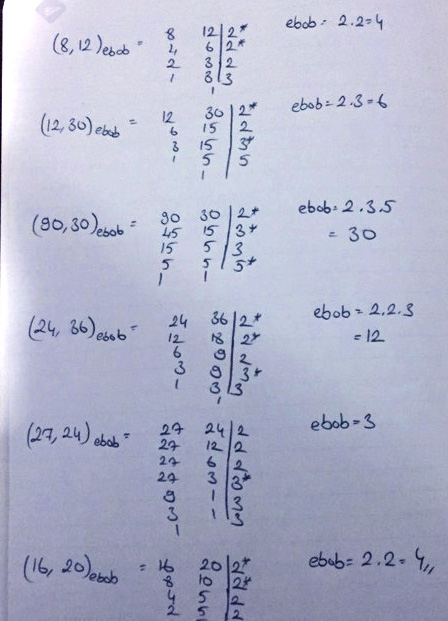 (8,12)ebob = 8 12|2* ebob = 2.2=4
4 6|2*
2 3|2
1 3|3
1
(12,30)ebob = 12 30|2* ebob=2.3=6
6 15|2
3 15|3*
1 5|5
1
(90,30)ebob = 90 30|2* ebob=2.3.5
45 15|3* = 30
15 5|3
5 5|5*
1 1
(24, 36)ebob = 24 36|2* ebob=2.2.3
12 18|2* =12
6 9|2
3 9|3*
1 3|3
1
(27,24)ebob = 27 24|2 ebob=3
27 12|2
27 6|2
27 3|3*
9 1|3
3 1|3
1
(16, 20)ebob = 16 20|2* ebob=2.2=4,,
8 10|2*
4 5|2
2 5|2